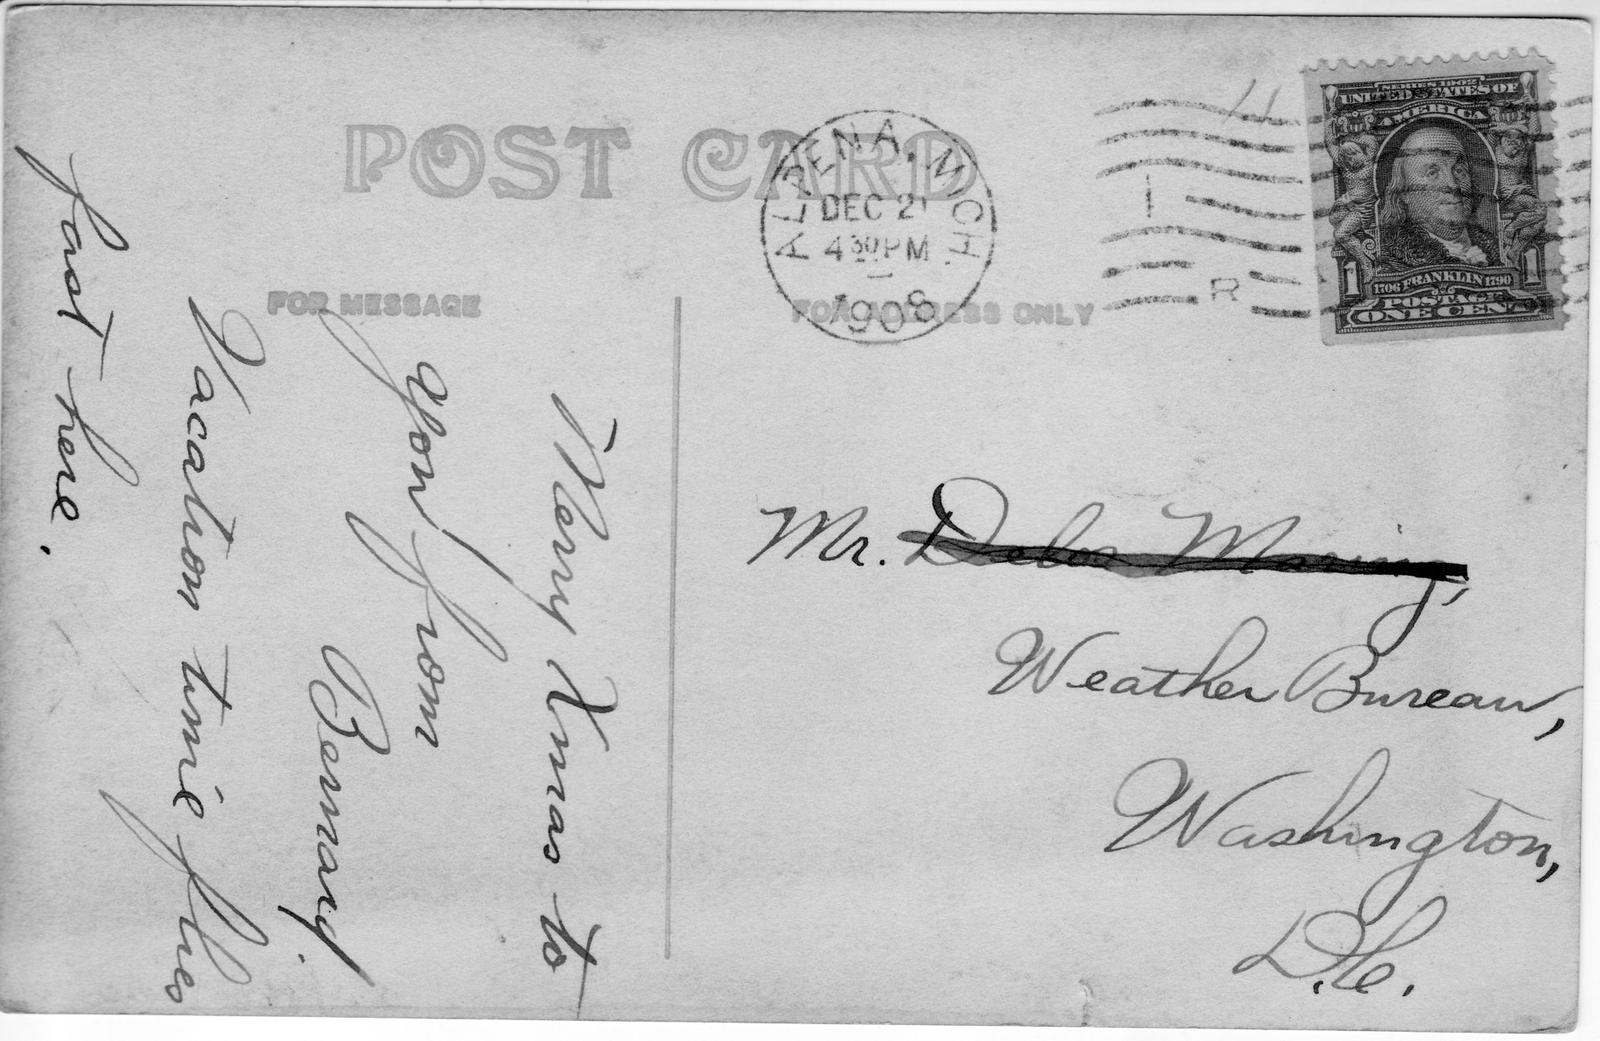 POST CARD
ALPENA, MICH.
DEC 21
4 30 PM
1908
SERIES 1902
UNITED STATES OF
AMERICA
1706 FRANKLIN 1790
1 1
POSTAGE
ONE CENT
R
FOR MESSAGE
FOR ADDRESS ONLY
Merry Xmas to
you from
Bernard.
Vacation time flies
fast here.
Mr. Delos
Weather Bureau,
Washington,
D.C.